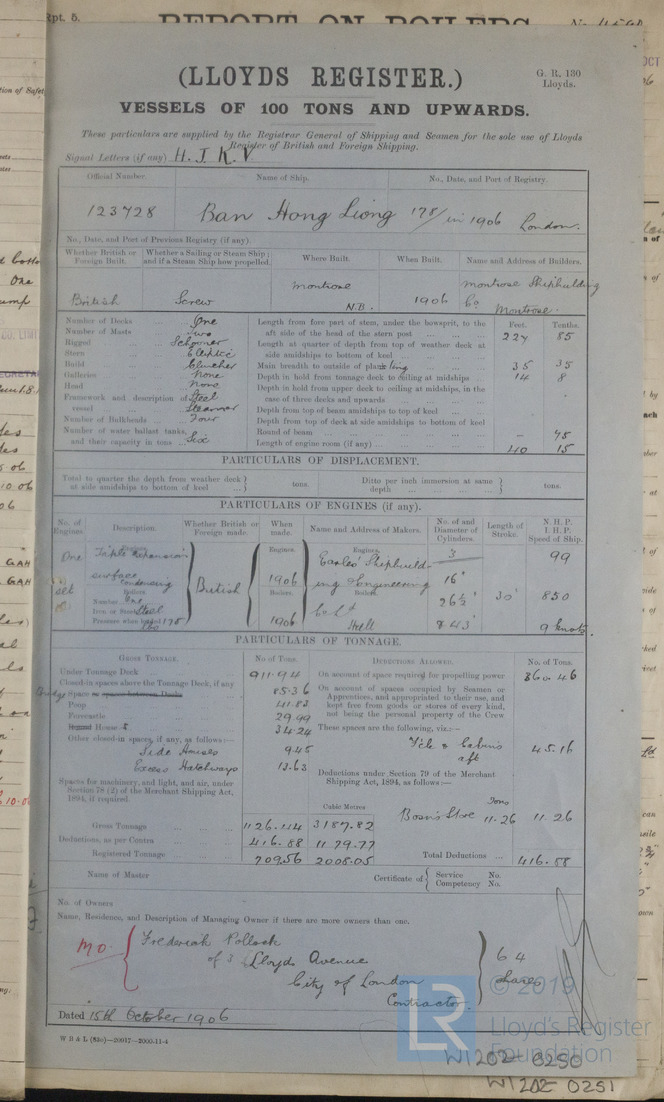 Rpt. 5.
REPORT ON BOILERS
(LLOYDS REGISTER.)
G. R, 130
Lloyds.
VESSELS OF 100 TONS AND UPWARDS.
These particulars are supplied by the Registrar General of Shipping and Seamen for the sole use of Lloyds
Register of British and Foreign Shipping.
Signal Letters (if any) H. J. K. V.
Official Number. Name of Ship. No., Date, and Port of Registry
123728 Ban Hong Liong 178/ in 1906 London.
No., Date, and Port of Previous Registry (if any)
Whether British or Foreign Built. Whether a Sailing or Steam Ship; and if a Steam Ship how propelled. Where Built. When Built. Name and Address of Builders.
British Screw Montrose N.B. 1906 Montrose Shipbuilding Co Montrose.
Number of Decks ... One
Number of Masts ... Two
Rigged ... Schooner
Stern ... Elliptic
Build ... Clincher
Galleries ... None
Head ... None
Framework and description of vessel ... Steel Steamer
Number of Bulkheads ... Four
Number of water ballast tanks, and their capacity in tons ... Six
Feet. Tenths.
Length from fore part of stem, under the bowsprit, to the
aft side of the head of the stern post ... 227 85
Length at quarter of depth from top of weather deck at
side amidships to bottom of keel ...
Main breadth to outside of plating ... 35 35
Depth in hold from tonnage deck to ceiling at midships ... 14 8
Depth in hold from upper deck to ceiling at midships, in the
case of three decks and upwards ...
Depth from top of beam amidships to top of keel ...
Depth from top of deck at side amidships to bottom of keel
Round of beam ... – 75
Length of engine room (if any) ... 40 15
PARTICULARS OF DISPLACEMENT.
Total to quarter the depth from weather deck at side amidships to bottom of keel ... tons. Ditto per inch immersion at same depth ... tons.
PARTICULARS OF ENGINES (if any).
No. of Engines. Description. Whether British or Foreign made. When made. Name and Address of Makers. No. of and Diameter of Cylinders. Length of Stroke. N. H. P. I. H. P. Speed of Ship.
Engines. Engines.
One Triple Expansion 3 99
surface condensing British 1906 Earles' Shipbuilding & Engineering 16"
Boilers Boilers. Boilers.
Number One 26½" 30" 850
Iron or Steel Steel Co Ld
Pressure when loaded 175 lbs 1906 Hull & 43" 9 knots.
PARTICULARS OF TONNAGE.
GROSS TONNAGE. No. of Tons. DEDUCTIONS ALLOWED. No. of Tons.
Under Tonnage Deck ... 911.94
Closed-in spaces above the Tonnage Deck, if any
Bridge Space or spaces between Decks 85.36
Poop ... 41.83
Forecastle ... 29.99
Round House s 34.24
Other closed-in spaces, if any, as follows:—
Side Houses 9.45
Excess Hatchways 13.63
Spaces for machinery, and light, and air, under
Section 78 (2) of the Merchant Shipping Act,
1894, if required
On account of space required for propelling power 360.46
On account of spaces occupied by Seamen or
Apprentices, and appropriated to their use, and
kept free from goods or stores of every kind,
not being the personal property of the Crew
These spaces are the following, viz.:—
F'cle & Cabins aft 45.16
Deductions under Section 79 of the Merchant
Shipping Act, 1894, as follows:—
Tons
Bosn's Store 11.26 11.26
Cubic Metres
Gross Tonnage ... 1126.44 3187.82
Deductions, as per Contra ... 416.88 1179.77
Registered Tonnage ... 709.56 2008.05
Total Deductions ... 416.88
Name of Master Certificate of Service No. Competency No.
No. of Owners
Name, Residence, and Description of Managing Owner if there are more owners than one.
M O. Frederick Pollock
of 3 Lloyds Avenue 64
City of London shares
Contractor.
Dated 15th October 1906
W B & L (83o)—20017—2000-11-4
© 2019
LR
Lloyd's Register
Foundation
W1202-0250
W1202-0251